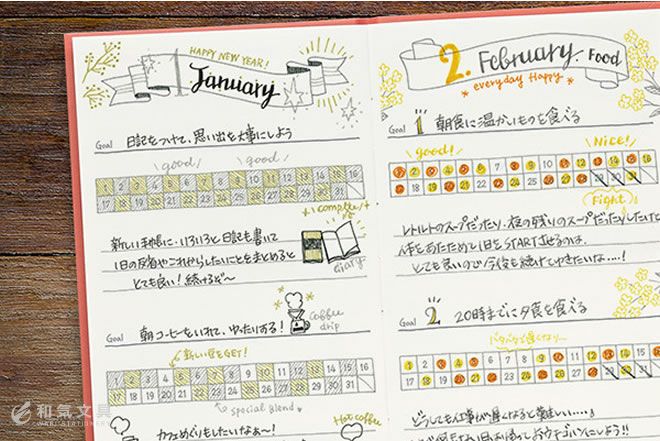 HAPPY NEW YEAR!
January
Goal 日記をつけて、思い出を大事にしよう
good! good!
1 2 3 4 5 6 7 8 9 10 11 12 13 14 15 16
17 18 19 20 21 22 23 24 25 26 27 28 29 30 31
complete!
新しい手帳に、いろいろと日記も書いて
1日の反省やこれからしたいことをまとめると
とても良い!続けるぞ〜
diary
Goal 朝コーヒーをいれて、ゆったりする!
Coffee
drip
新しい豆をGET!
1 2 3 4 5 6 7 8 9 10 11 12 13 14 15 16
17 18 19 20 21 22 23 24 25 26 27 28 29 30 31
special Blend
Hot coffee
カフェめぐりもしたいなぁ〜!
和氣文具
WAKI STATIONERY
2. February. Food
everyday Happy
Goal 1 朝食に温かいものを食べる
good! Nice!
1 2 3 4 5 6 7 8 9 10 11 12 13 14 15 16
17 18 19 20 21 22 23 24 25 26 27 28 29 30 31
Fight
レトルトのスープだったり、夜の残りのスープだったりしたいけど
体をあたためて1日をSTARTさせるのは、
とても良いので今後も続けてゆきたいな…!
Goal 2 20時までに夕食を食べる
バタバタで遅くなり…
1 2 3 4 5 6 7 8 9 10 11 12 13 14 15 16
17 18 19 20 21 22 23 24 25 26 27 28 29 30 31
どうしても仕事が遅くなると難しい…!